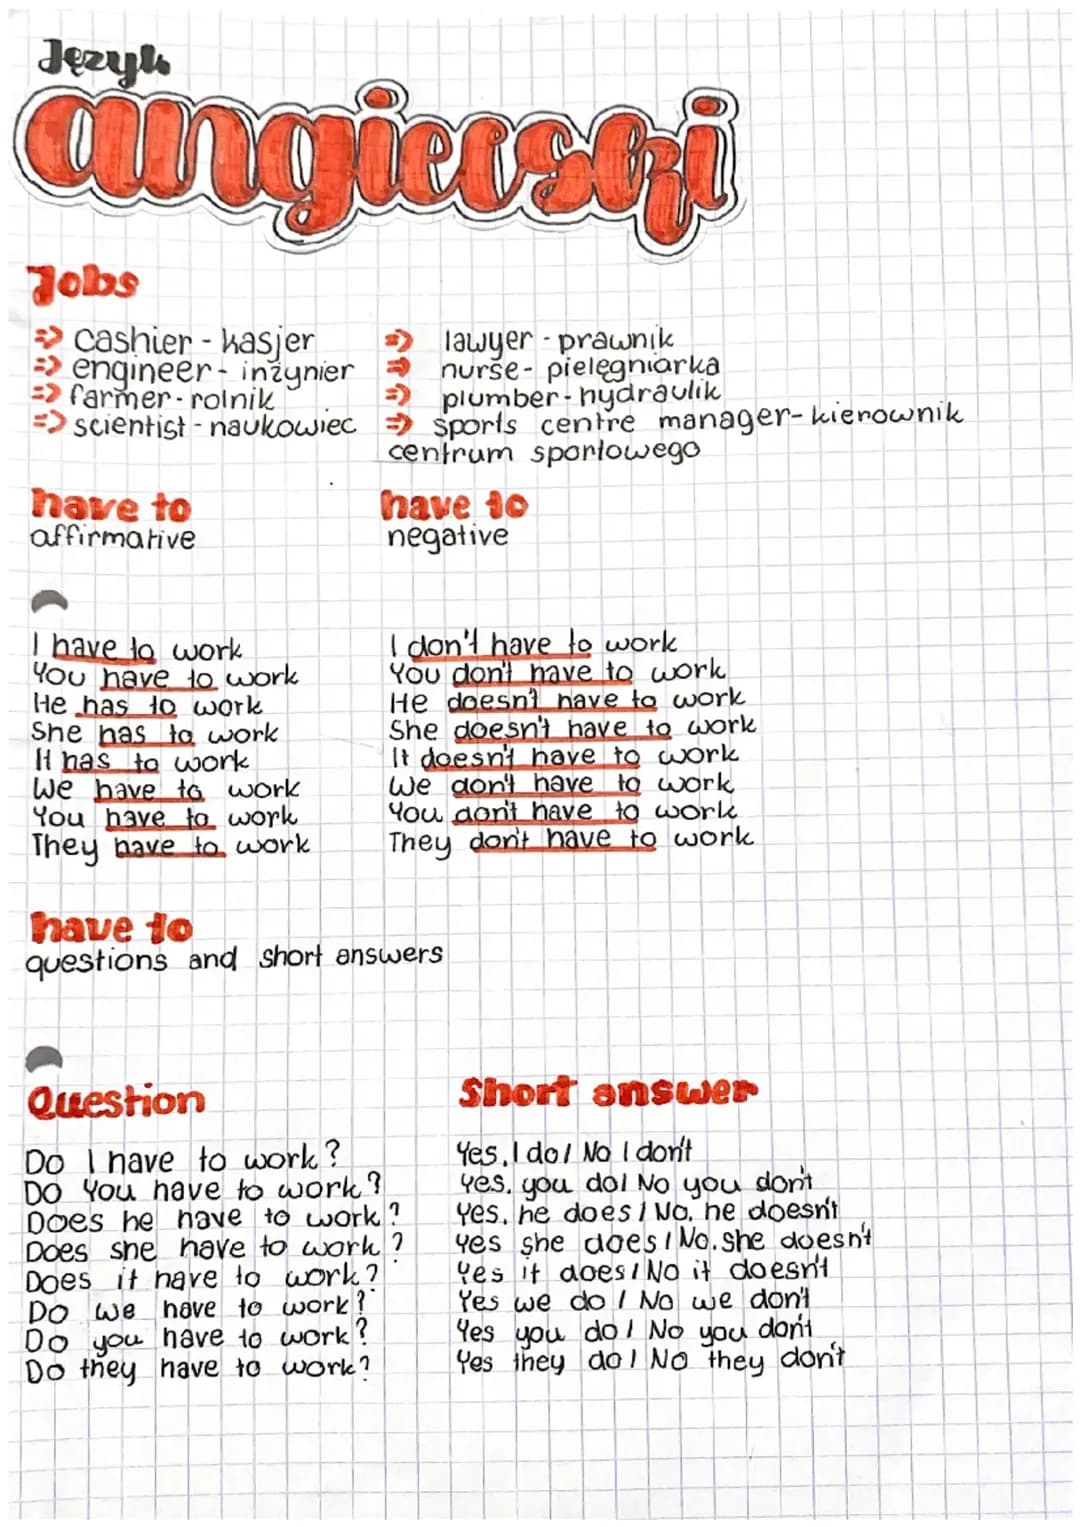 Język
angielski
Jobs
=> cashier - kasjer
=> engineer - inżynier
=> farmer - rolnik
=> scientist - naukowiec
=> lawyer - prawnik
=> nurse - pielęgniarka
=> plumber - hydraulik
=> sports centre manager - kierownik
centrum sportowego
have to
affirmative
I have to work
You have to work
He has to work
She has to work
It has to work
We have to work
You have to work
They have to work
have to
negative
I don't have to work
You don't have to work
He doesn't have to work
She doesn't have to work
It doesn't have to work
We don't have to work
You don't have to work
They don't have to work
have to
questions and short answers
Question
Do I have to work?
Do You have to work?
Does he have to work?
Does she have to work?
Does it have to work?
Do we have to work?
Do you have to work?
Do they have to work?
Short answer
Yes, I do / No I don't
Yes, you do / No you don't
Yes, he does / No, he doesn't
Yes she does / No, she doesn't
Yes it does / No it doesn't
Yes we do / No we don't
Yes you do / No you don't
Yes they do / No they don't